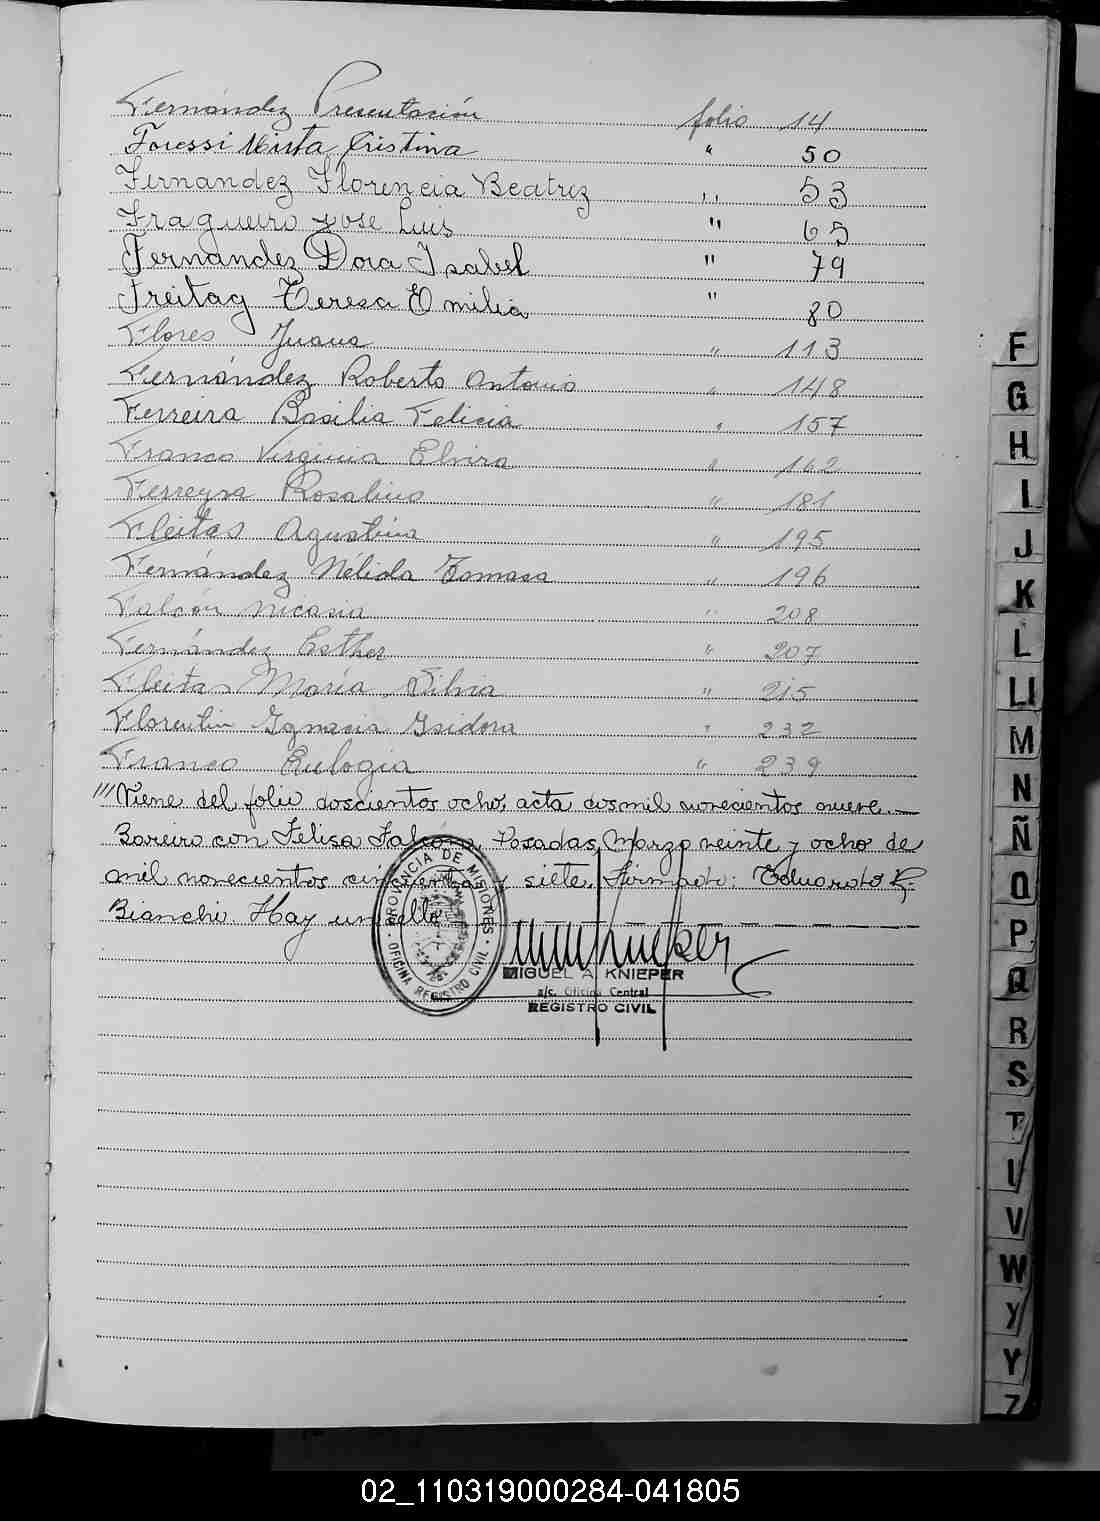 Fernández Presentación folio 14
Foressi Mirta Cristina " 50
Fernandez Florencia Beatriz " 53
Fragueiro Jose Luis " 65
Fernandez Dora Isabel " 79
Freitag Teresa Emilia " 80
Flores Juana " 113
Fernández Roberto Antonio " 148
Ferreira Basilia Felicia " 157
Franco Virginia Elvira " 162
Ferreyra Rosalina " 181
Fleitas Agustina " 195
Fernández Nélida Tomasa " 196
Falcón Nicasia " 208
Fernández Esther " 207
Fleitas María Silvia " 215
Florentin Ignacia Isidora " 232
Franco Eulogia " 239
///Viene del folio doscientos ocho, acta dosmil novecientos nueve.—
Bareiro con Felisa Falcón. Posadas, Marzo veinte y ocho de
mil novecientos cincuenta y siete. Firmado: Eduardo R.
Bianchi. Hay un sello
PROVINCIA DE MISIONES
OFICINA REGISTRO CIVIL
MIGUEL A. KNIEPER
a/c. Oficina Central
REGISTRO CIVIL
F
G
H
I
J
K
L
LI
M
N
Ñ
O
P
Q
R
S
T
V
W
Y
Z
02_110319000284-041805